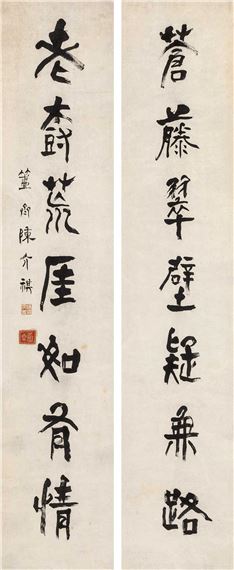 蒼藤翠壁疑無路
老樹荒厓如有情
簠卿陳介祺